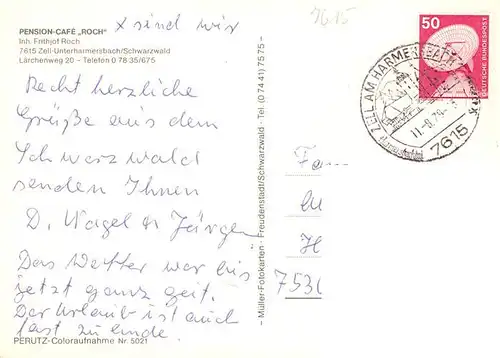 x sind wir
7615
PENSION-CAFÉ „ROCH"
Inh. Frithjof Roch
7615 Zell-Unterharmersbach/Schwarzwald
Lärchenweg 20 – Telefon 0 78 35/675
Recht herzliche
Grüße aus dem
Schwarzwald
senden Ihnen
D. Nagel u Jürgen
Das Wetter war bis
jetzt ganz gut.
Der Urlaub ist auch
fast zu Ende.
PERUTZ-Coloraufnahme Nr. 5021
– Müller-Fotokarten · Freudenstadt/Schwarzwald · Tel. (0 74 41) 75 75 –
50
DEUTSCHE BUNDESPOST
ZELL AM HARMERSBACH
11.-8.79
7615
Fam
H
753